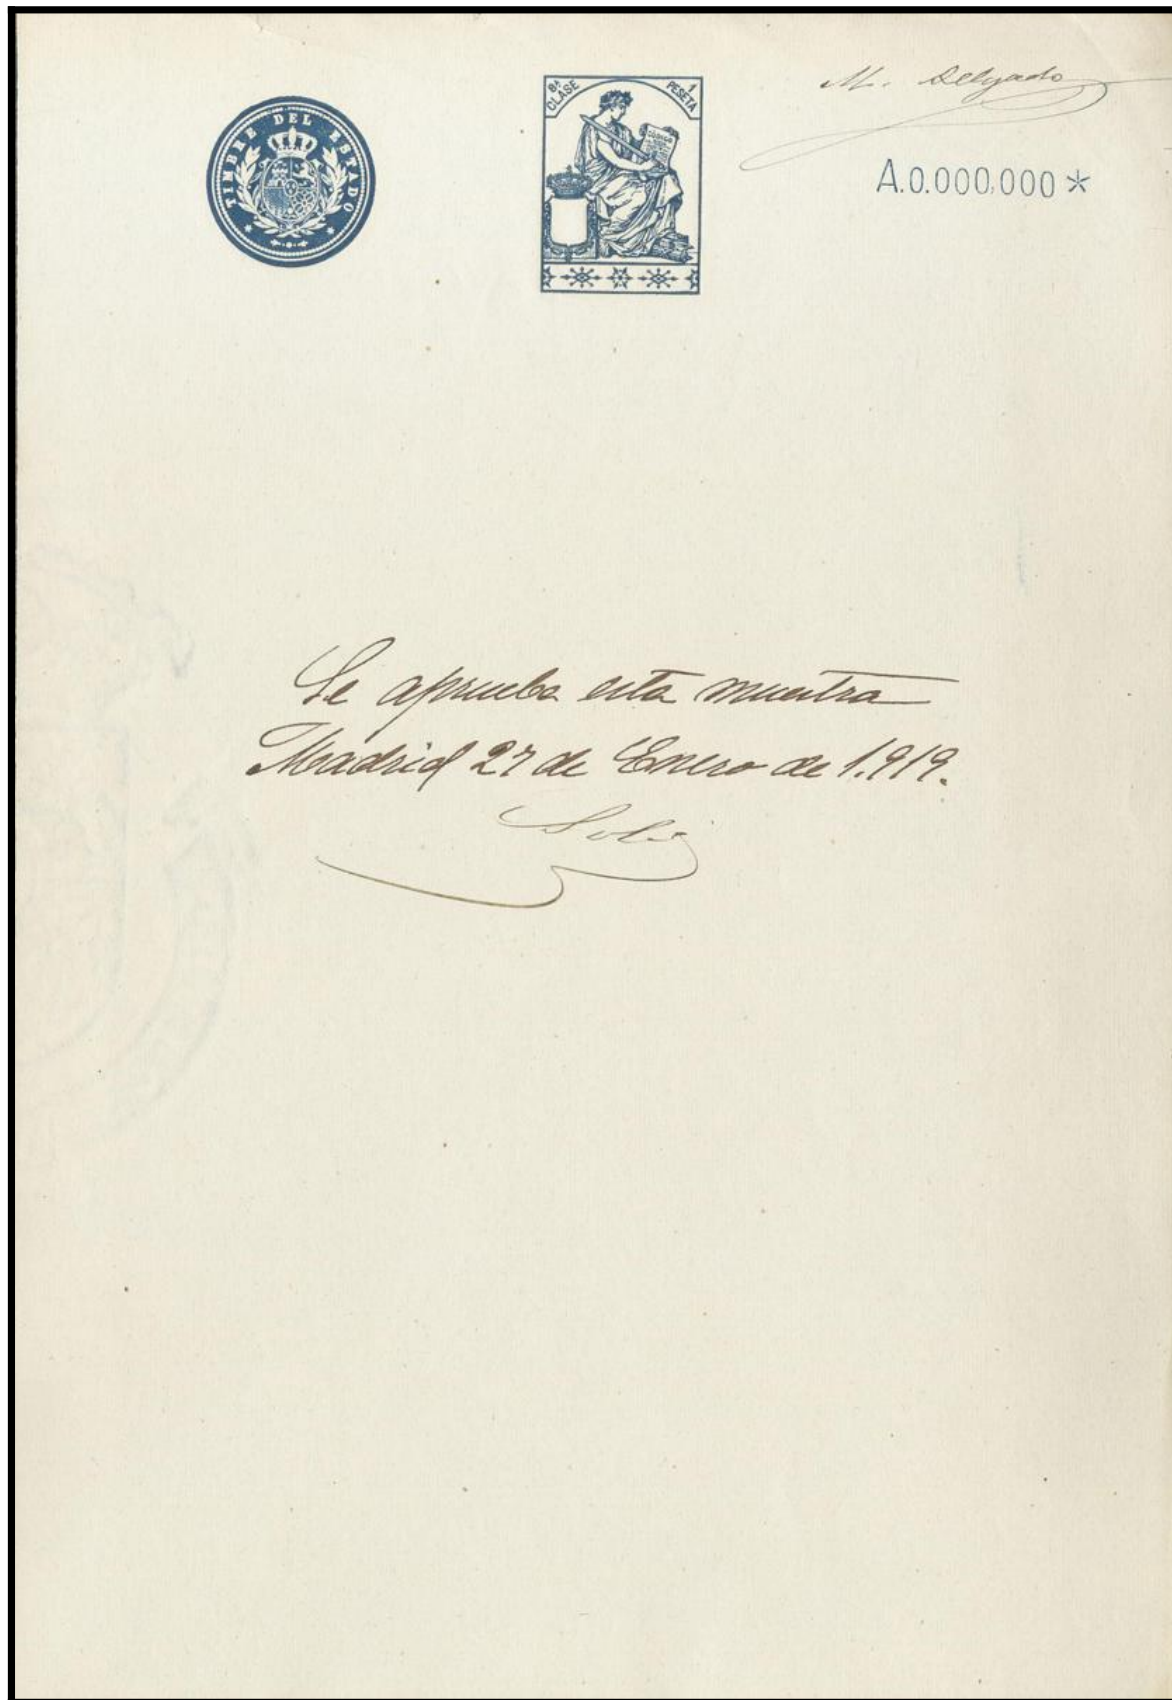 TIMBRE DEL ESTADO
8ª CLASE
1 PESETA
M. Delgado
A.0.000,000 *
Se aprueba esta muestra
Madrid 27 de Enero de 1.919.